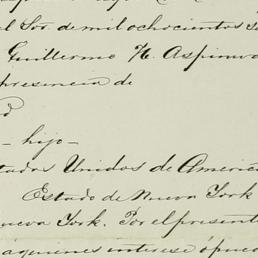 el Sor. de mil ochocientos s
Guillermo H. Aspinw
presencia de
d
- hijo -
stados Unidos de América
Estado de Nueva York
nueva York. Por el presente
á quienes interese ó pued